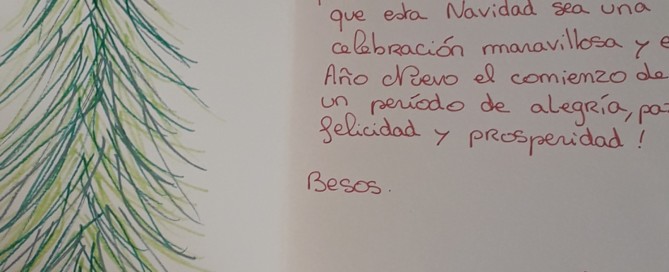 que esta Navidad sea una
celebración maravillosa y e
Año Nuevo el comienzo de
un período de alegría, pa
felicidad y prosperidad!
Besos.